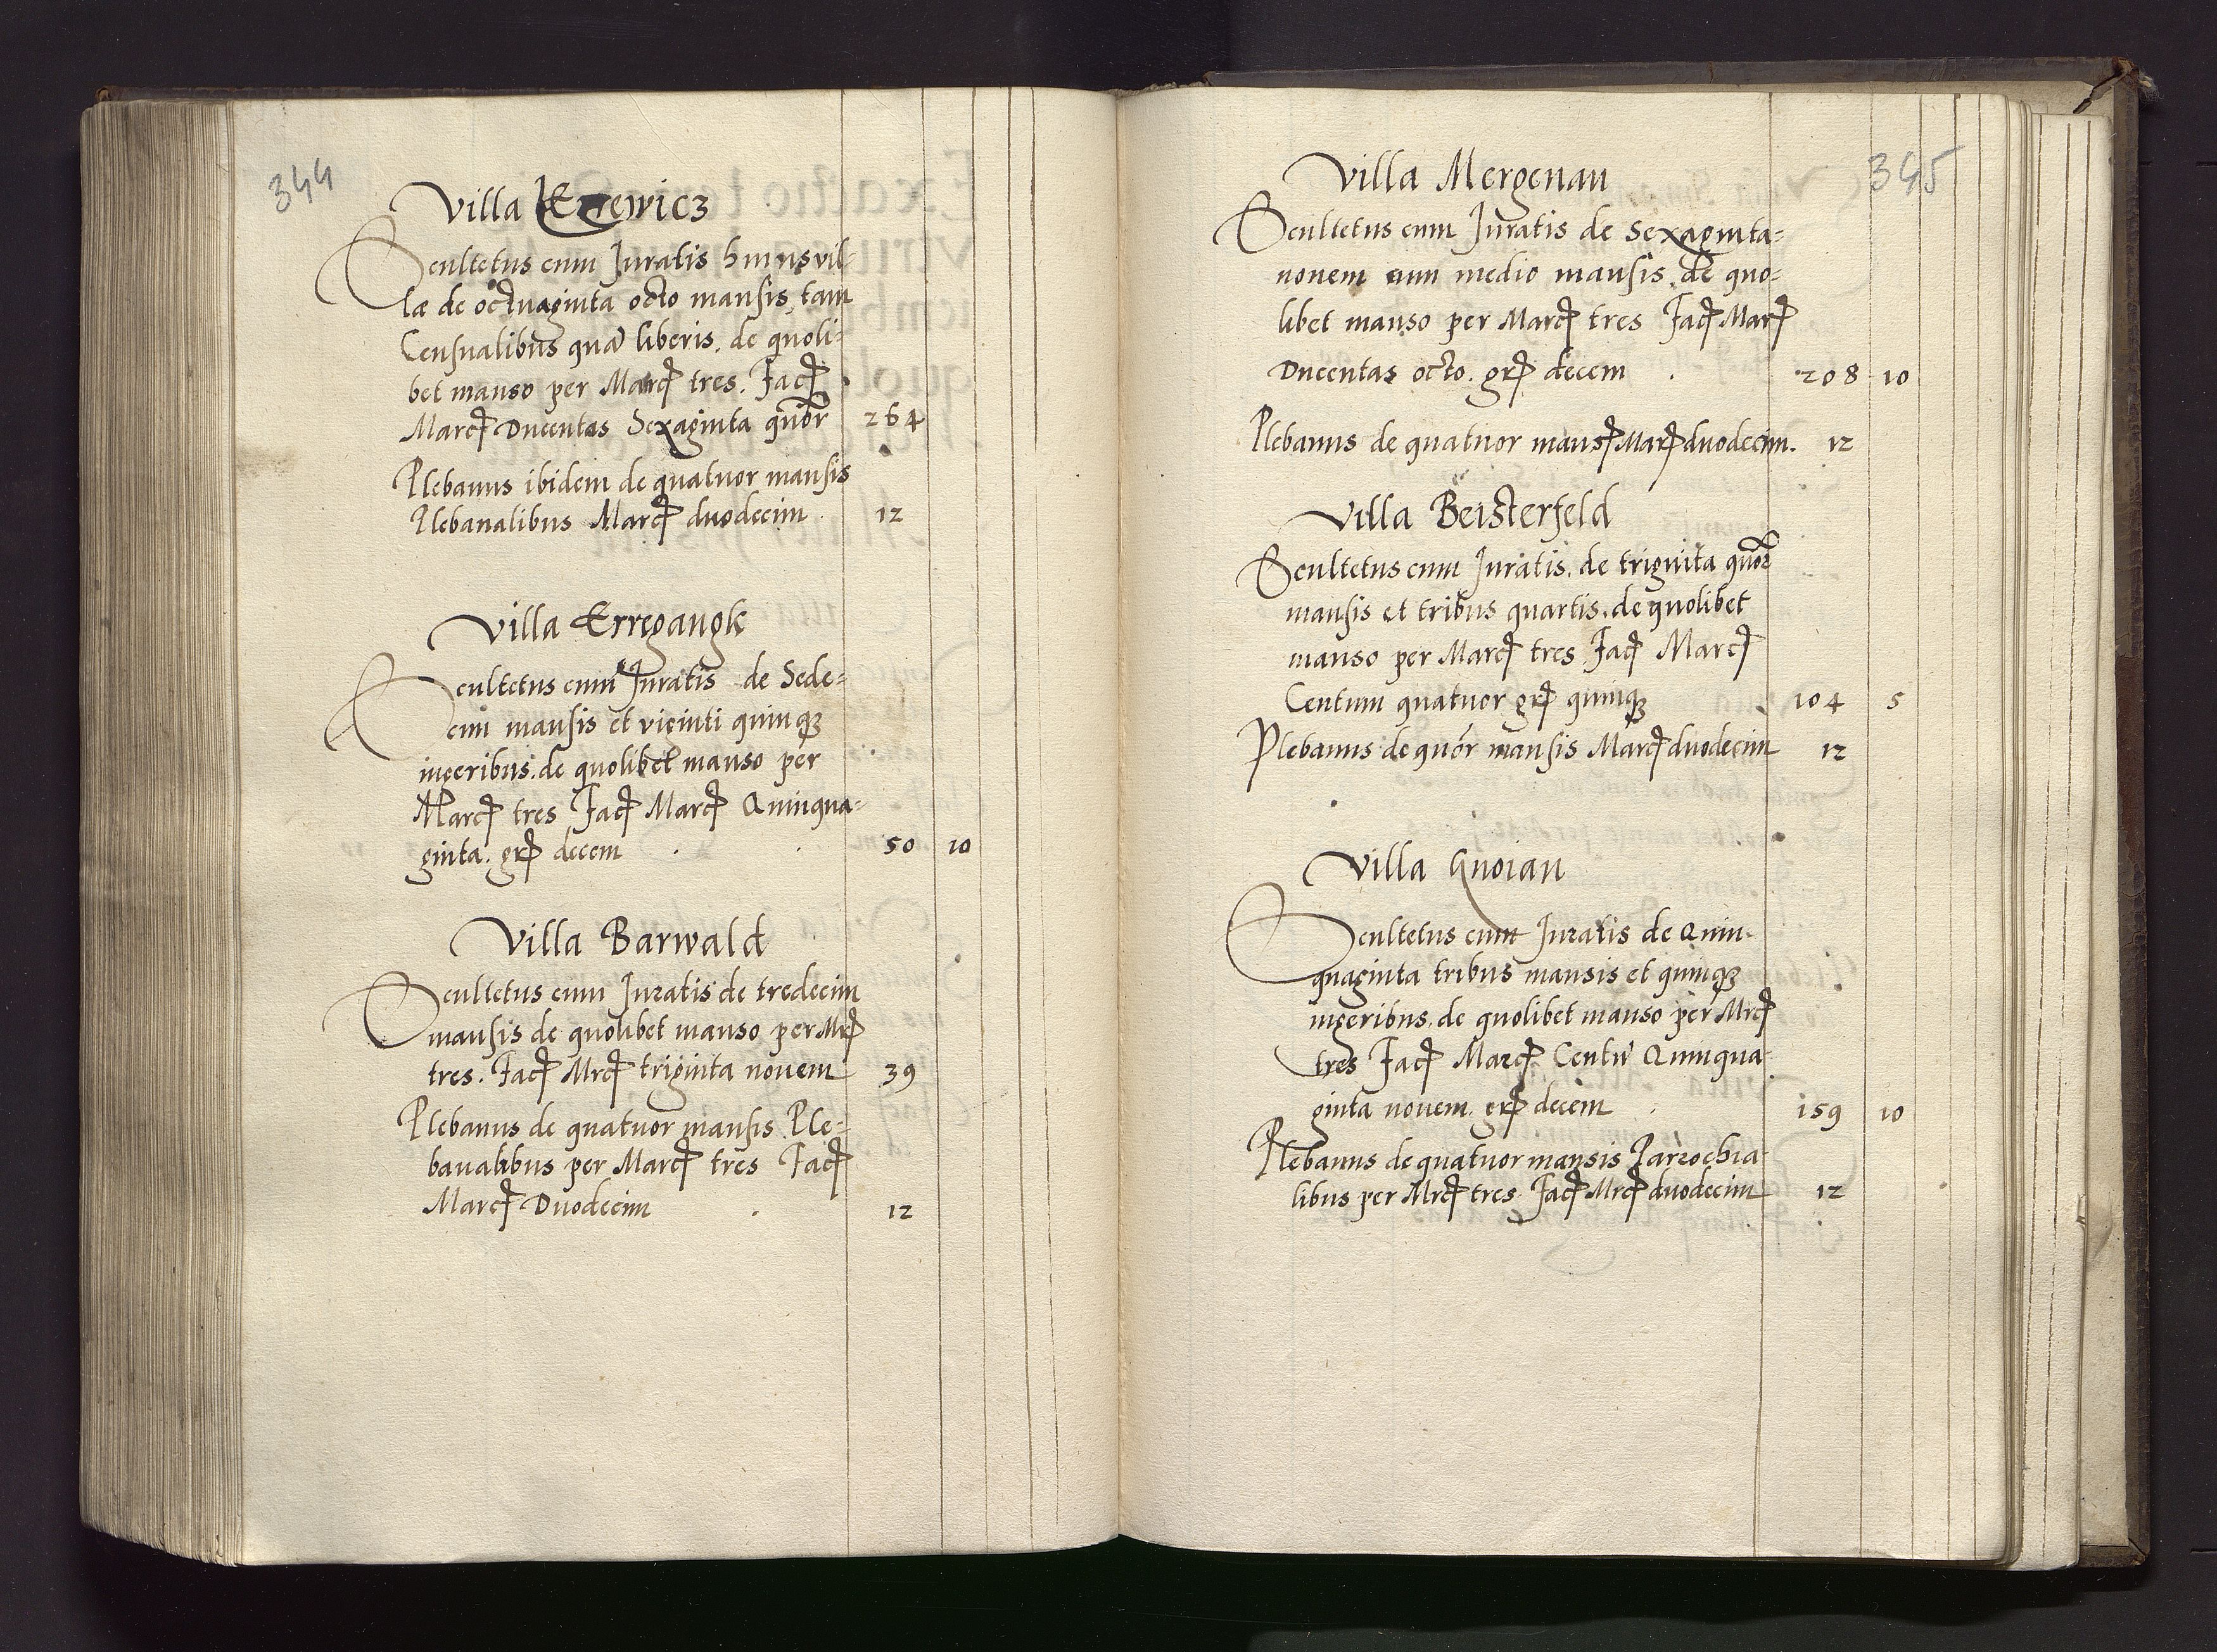 344
Villa
Scultetus cum Juratis huius vil-
læ de octuaginta octo mansis, tam
Censualibus quã liberis, de quoli-
bet manso per Marcꝭ tres. Facꝭ
Marcꝭ Ducentas Sexaginta quõr 264
Plebanus ibidem de quatuor mansis
Plebanalibus Marcꝭ duodecim. 12
Villa Erregangk
Scultetus cum Juratis de Sede-
cim mansis et viginti quinqꝫ
iugeribus, de quolibet manso per
Marcꝭ tres Facꝭ Marcꝭ Quinqua-
ginta. grꝭ decem 50 10
Villa Barwald
Scultetus cum Juratis de tredecim
mansis de quolibet manso per Mrcꝭ
tres. Facꝭ Mrcꝭ triginta novem 39
Plebanus de quatuor mansis Ple-
banalibus per Marcꝭ tres Facꝭ
Marcꝭ Duodecim 12
345
Villa Mergenau
Scultetus cum Juratis de Sexaginta-
novem cum medio mansis, de quo-
libet manso per Marcꝭ tres Facꝭ Marꝭ
Ducentas octo. grꝭ decem 208 10
Plebanus de quatuor mansꝭ Marꝭ duodecim. 12
Villa Beisterfeld
Scultetus cum Juratis, de triginta quõr
mansis et tribus quartis, de quolibet
manso per Marcꝭ tres Facꝭ Marcꝭ
Centum quatuor grꝭ quinqꝫ 104 5
Plebanus de quõr mansis Marcꝭ duodecim 12
Villa Gnoian
Scultetus cum Juratis de Quin-
quaginta tribus mansis et quinqꝫ
iugeribus, de quolibet manso per Mrcꝭ
tres Facꝭ Marcꝭ Centũ Quinqua-
ginta novem. grꝭ decem 159 10
Plebanus de quatuor mansis Parrochia-
libus per Mrcꝭ tres Facꝭ Mrcꝭ duodecim 12